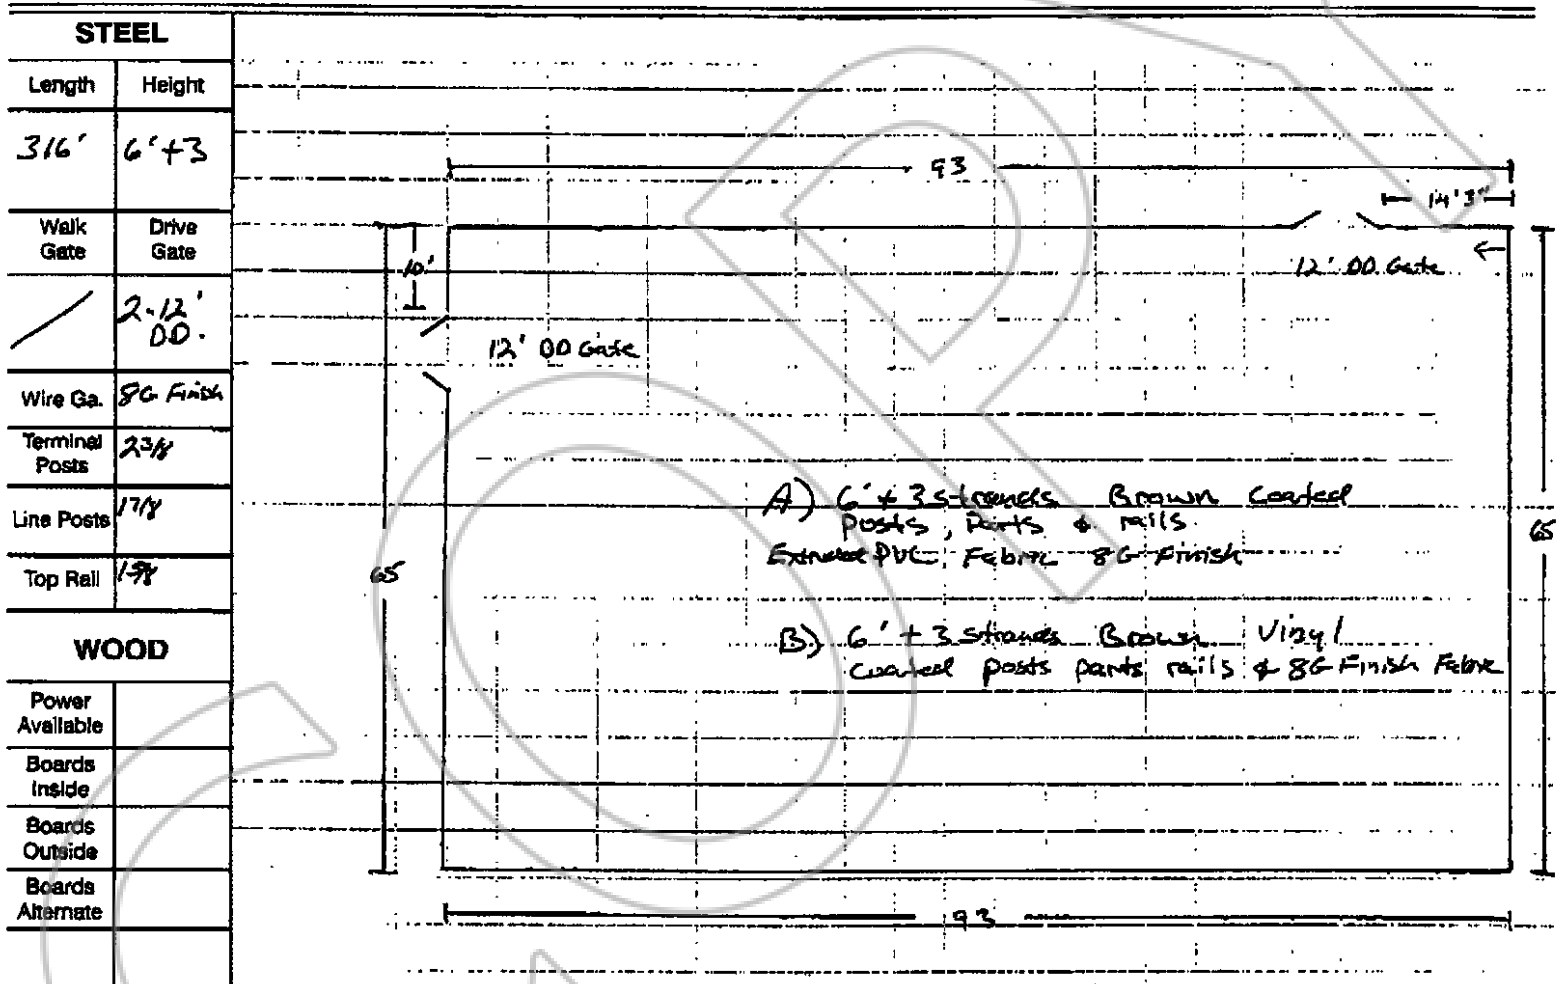 STEEL
Length Height
316' 6'+3
Walk Gate Drive Gate
2-12' DD.
Wire Ga. 8G Finish
Terminal Posts 23/8
Line Posts 17/8
Top Rail 15/8
WOOD
Power Available
Boards Inside
Boards Outside
Boards Alternate
93
14'3"
12' DD. Gate
10'
12' DD Gate
65
65
A) 6'+3 strands Brown Coated
posts, parts & rails
Extruded PVC Fabric 8G Finish
B.) 6'+3 strands Brown Vinyl
coated posts parts rails & 8G Finish Fabric
93
COPY